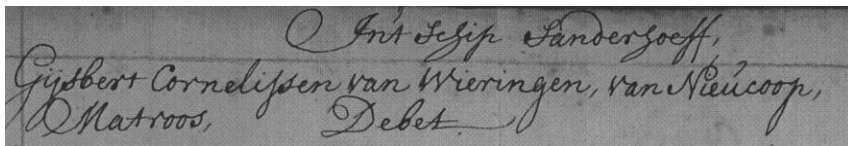 In't Schip Sanderhoeff,
Gijsbert Cornelissen van Wieringen, van Nieúcoop,
Matroos, Debet